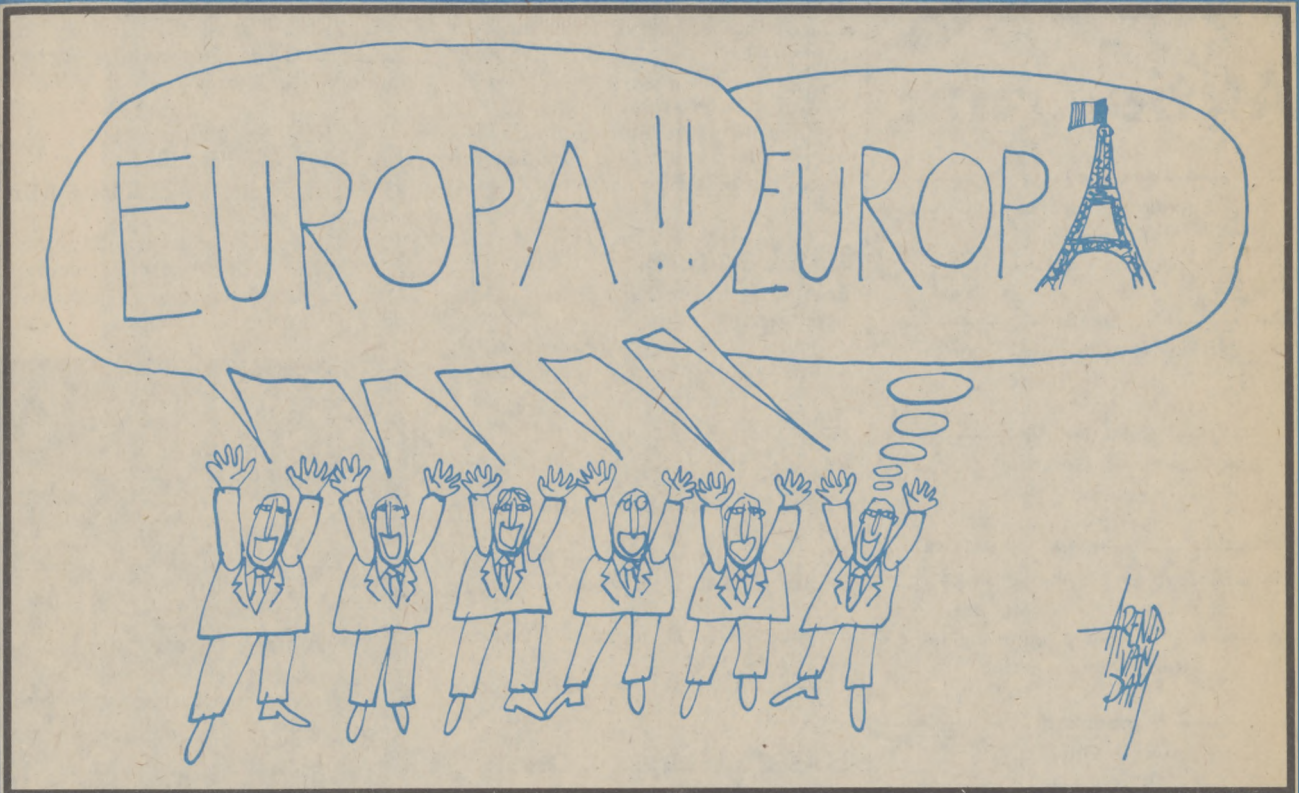 EUROPA!!
EUROPA
AREND
VAN
DAM